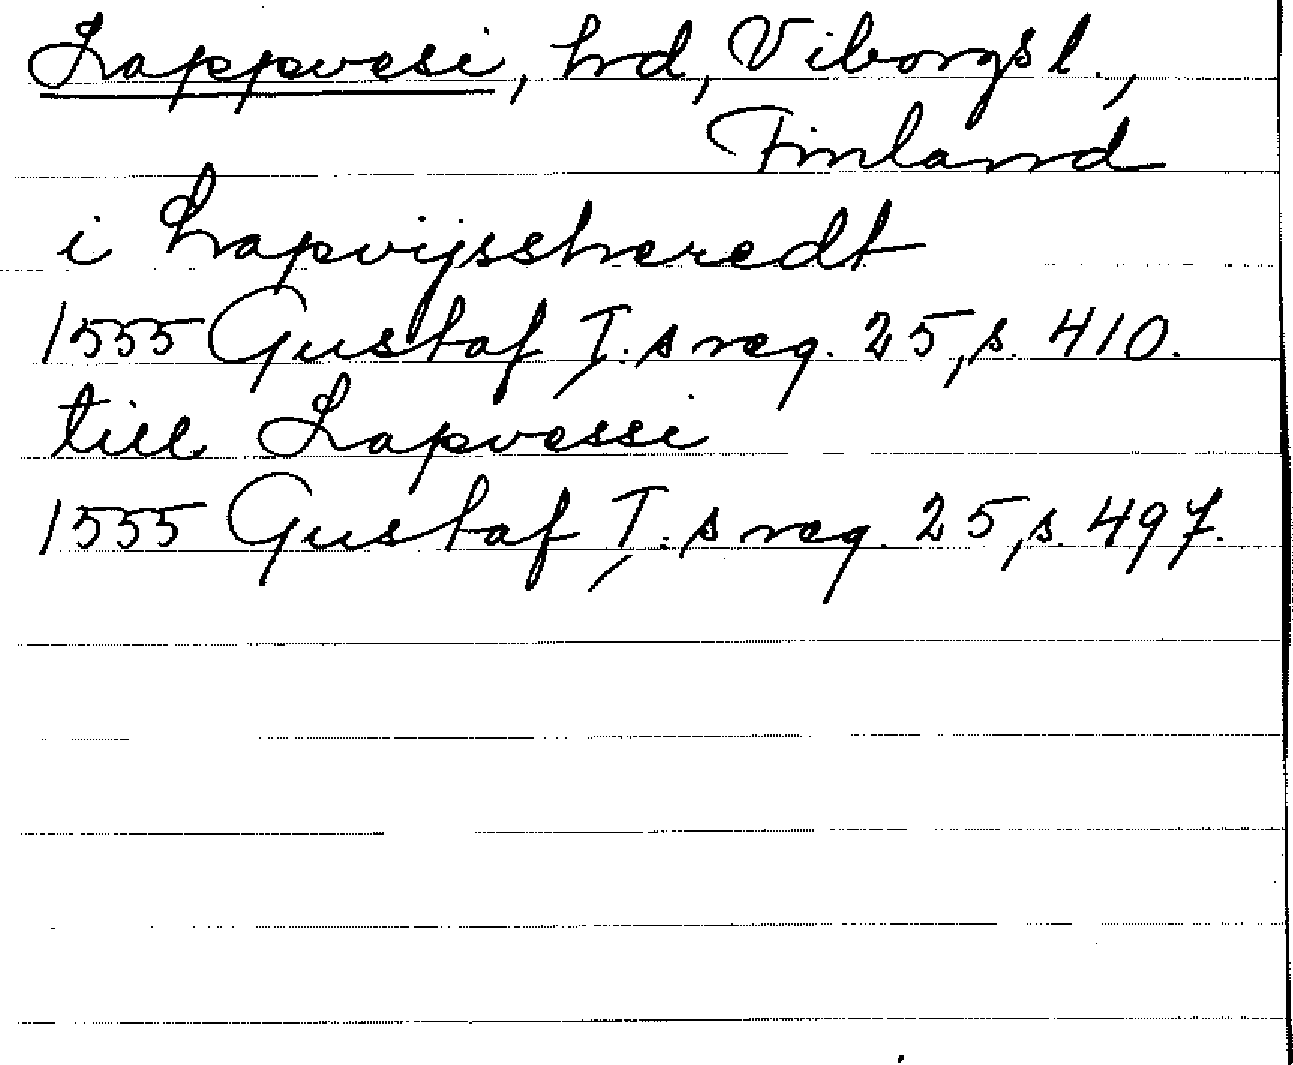 Lappvesi, hrd, Viborgs l.,
Finland
i Lapvijssheredt
1555 Gustaf I:s reg. 25, s. 410.
till Lapvessi
1555 Gustaf I:s reg. 25, s. 497.